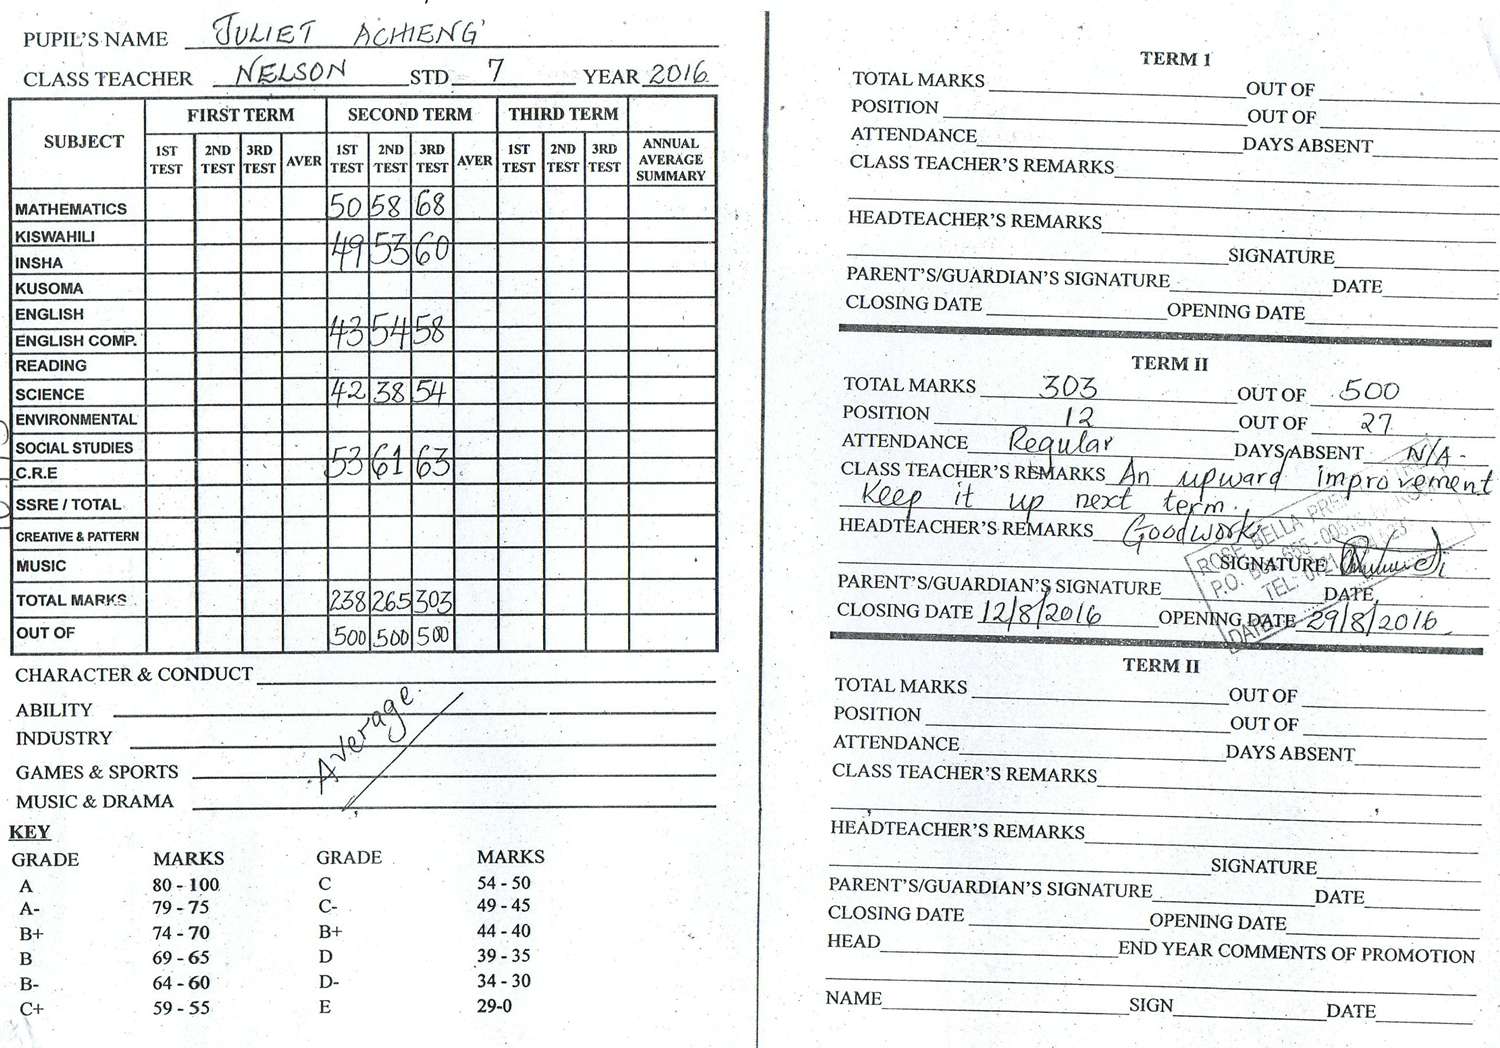 PUPIL'S NAME JULIET ACHIENG'
CLASS TEACHER NELSON STD 7 YEAR 2016
SUBJECT FIRST TERM SECOND TERM THIRD TERM
1ST TEST 2ND TEST 3RD TEST AVER 1ST TEST 2ND TEST 3RD TEST AVER 1ST TEST 2ND TEST 3RD TEST ANNUAL AVERAGE SUMMARY
MATHEMATICS 50 58 68
KISWAHILI
INSHA 49 53 60
KUSOMA
ENGLISH
ENGLISH COMP. 43 54 58
READING
SCIENCE 42 38 54
ENVIRONMENTAL
SOCIAL STUDIES
C.R.E 53 61 63
SSRE / TOTAL
CREATIVE & PATTERN
MUSIC
TOTAL MARKS 238 265 303
OUT OF 500 500 500
CHARACTER & CONDUCT
ABILITY
INDUSTRY
GAMES & SPORTS
MUSIC & DRAMA
Average.
KEY
GRADE MARKS GRADE MARKS
A 80 - 100 C 54 - 50
A- 79 - 75 C- 49 - 45
B+ 74 - 70 B+ 44 - 40
B 69 - 65 D 39 - 35
B- 64 - 60 D- 34 - 30
C+ 59 - 55 E 29-0
TERM I
TOTAL MARKS OUT OF
POSITION OUT OF
ATTENDANCE DAYS ABSENT
CLASS TEACHER'S REMARKS
HEADTEACHER'S REMARKS
SIGNATURE
PARENT'S/GUARDIAN'S SIGNATURE DATE
CLOSING DATE OPENING DATE
TERM II
TOTAL MARKS 303 OUT OF 500
POSITION 12 OUT OF 27
ATTENDANCE Regular DAYS ABSENT N/A-
CLASS TEACHER'S REMARKS An upward improvement
Keep it up next term.
HEADTEACHER'S REMARKS Goodwork
SIGNATURE
ROSE BELLA
P.O. BOX
TEL:
DATE
PARENT'S/GUARDIAN'S SIGNATURE DATE
CLOSING DATE 12/8/2016 OPENING DATE 29/8/2016
TERM II
TOTAL MARKS OUT OF
POSITION OUT OF
ATTENDANCE DAYS ABSENT
CLASS TEACHER'S REMARKS
HEADTEACHER'S REMARKS
SIGNATURE
PARENT'S/GUARDIAN'S SIGNATURE DATE
CLOSING DATE OPENING DATE
HEAD END YEAR COMMENTS OF PROMOTION
NAME SIGN DATE